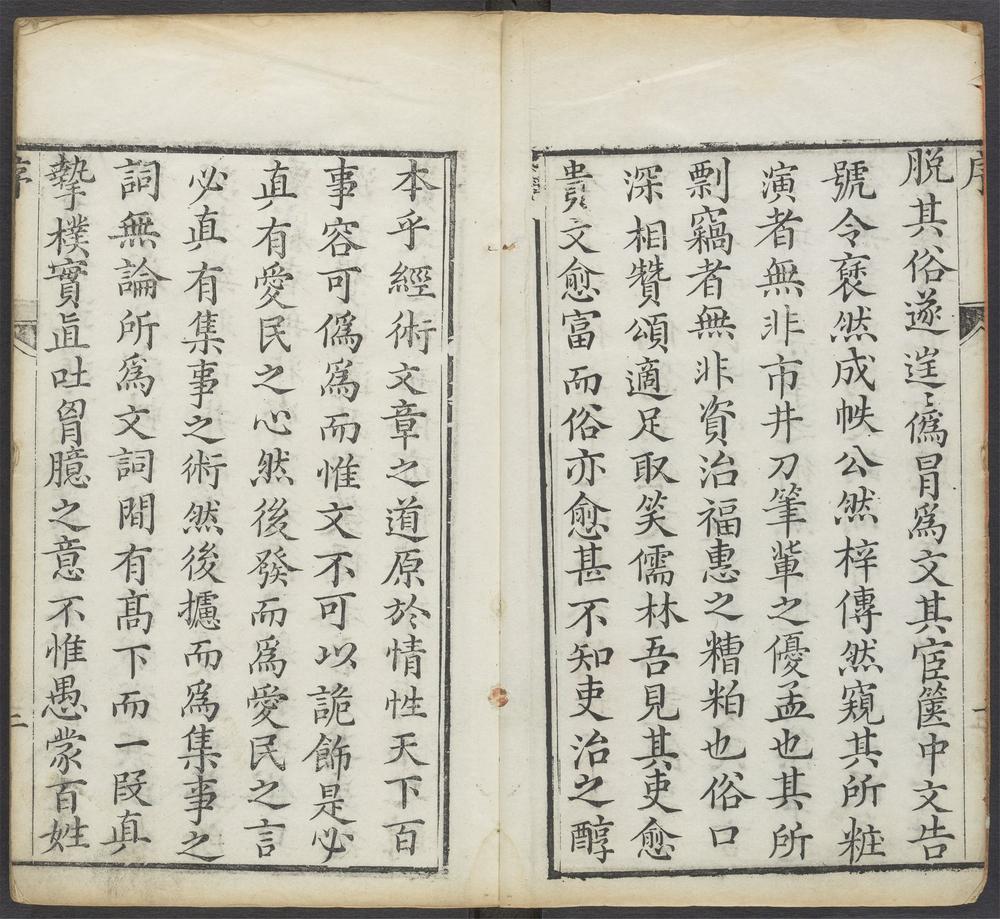 序
脫其俗遂逞〻僞冒爲文其宦篋中文告
號令裒然成帙公然梓傳然窺其所粧
演者無非市井刀筆輩之優孟也其所
剽竊者無非資治福惠之糟粕也俗口
深相贊頌適足取笑儒林吾見其吏愈
蠹文愈富而俗亦愈甚不知吏治之醇
本乎經術文章之道原於情性天下百
事容可僞爲而惟文不可以詭飾是必
真有愛民之心然後發而爲愛民之言
必真有集事之術然後攄而爲集事之
詞無論所爲文詞閒有高下而一段真
摯樸實直吐胷臆之意不惟愚蒙百姓
序
二